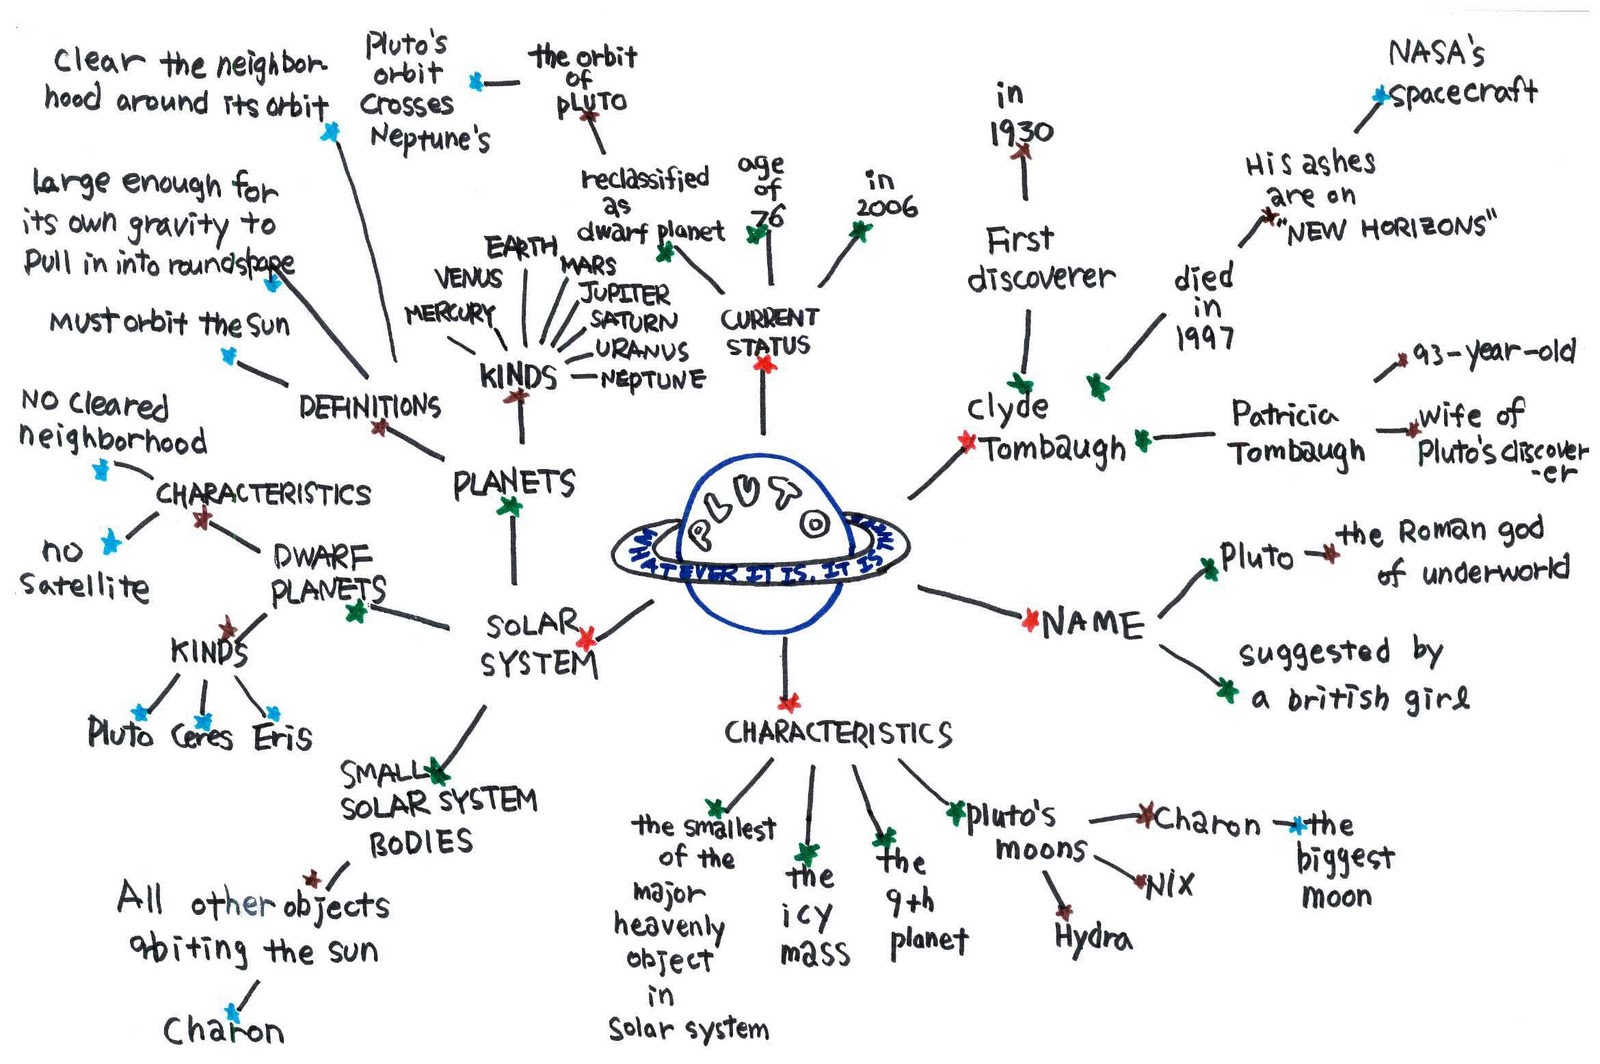 Clear the neighbor-
hood around its orbit
Pluto's
orbit
Crosses
Neptune's
the orbit
of
PLUTO
large enough for
its own gravity to
Pull in into roundshape
Must orbit the Sun
DEFINITIONS
reclassified
as
dwarf planet
age
of
76
in
2006
CURRENT
STATUS
MERCURY
VENUS
EARTH
MARS
JUPITER
SATURN
URANUS
NEPTUNE
KINDS
PLANETS
in
1930
First
discoverer
Clyde
Tombaugh
died
in
1997
His ashes
are on
"NEW HORIZONS"
NASA's
spacecraft
Patricia
Tombaugh
93-year-old
wife of
Pluto's discover
-er
NO cleared
neighborhood
CHARACTERISTICS
no
satellite
DWARF
PLANETS
KINDS
Pluto Ceres Eris
SOLAR
SYSTEM
PLUTO
WHATEVER IT IS, IT IS
NAME
Pluto
the Roman god
of underworld
suggested by
a british girl
SMALL
SOLAR SYSTEM
BODIES
All other objects
orbiting the sun
Charon
CHARACTERISTICS
the smallest
of the
major
heavenly
object
in
Solar system
the
icy
mass
the
9th
planet
pluto's
moons
Charon
the
biggest
moon
Nix
Hydra